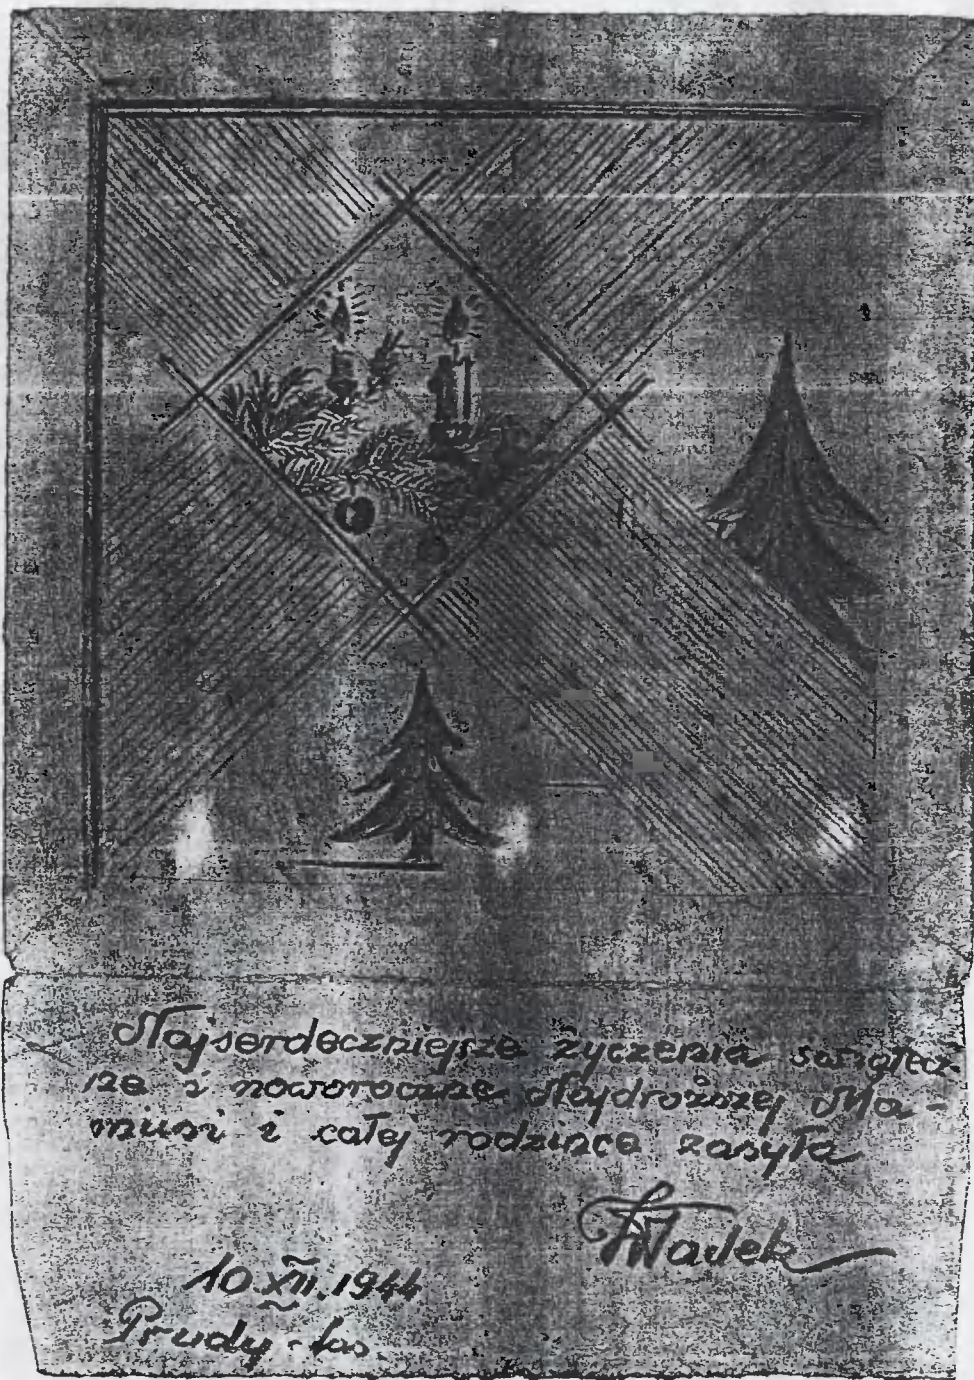 Najserdeczniejsze życzenia świątecz-
ne i noworoczne Najdroższej Ma-
musi i całej rodzince zasyła
Władek
10.XII.1944
Prudy-las